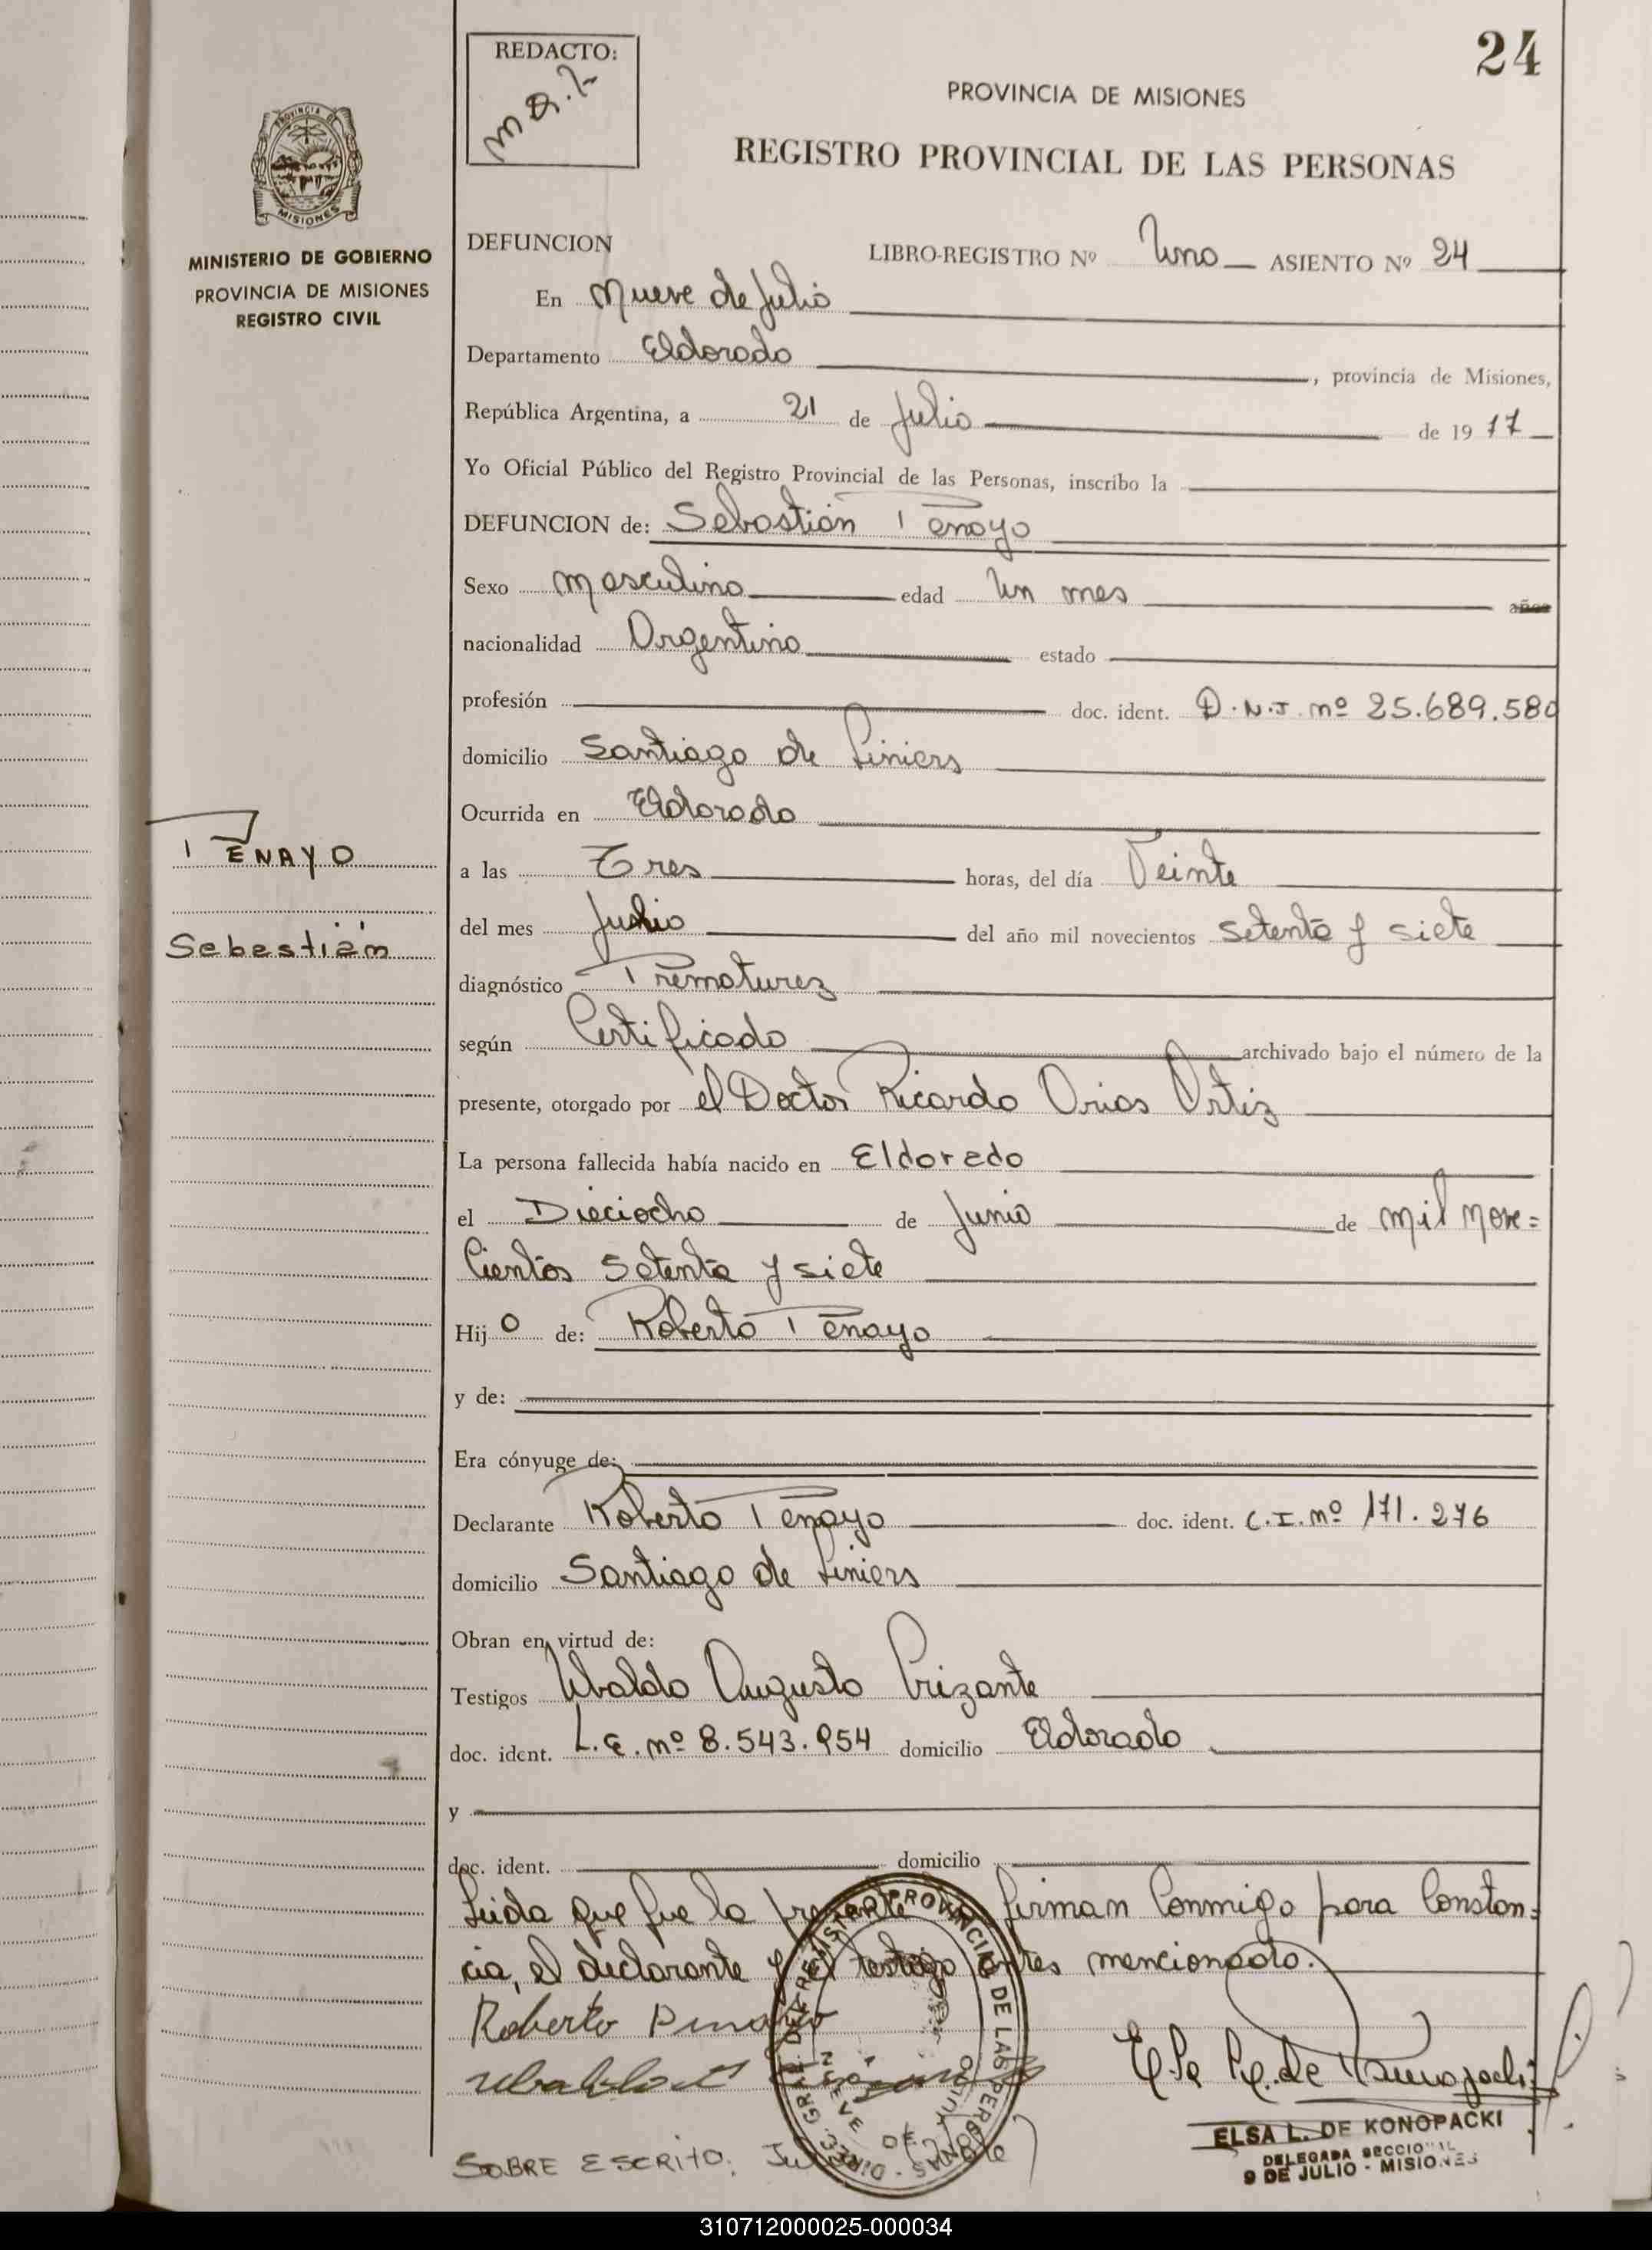 24
REDACTO:
PROVINCIA DE MISIONES
REGISTRO PROVINCIAL DE LAS PERSONAS
PROVINCIA DE
MISIONES
MINISTERIO DE GOBIERNO
PROVINCIA DE MISIONES
REGISTRO CIVIL
DEFUNCION LIBRO-REGISTRO Nº Uno ASIENTO Nº 24
En Nueve de Julio
Departamento Eldorado , provincia de Misiones,
República Argentina, a 21 de Julio de 1977
Yo Oficial Público del Registro Provincial de las Personas, inscribo la
DEFUNCION de: Sebastián Penayo
Sexo masculino edad Un mes años
nacionalidad Argentino estado
profesión doc. ident. D.N.I. nº 25.689.580
domicilio Santiago de Liniers
Ocurrida en Eldorado
PENAYO
a las Tres horas, del día Veinte
Sebastián
del mes Julio del año mil novecientos setenta y siete
diagnóstico Prematurez
según Certificado archivado bajo el número de la
presente, otorgado por el Doctor Ricardo Arias Ortiz
La persona fallecida había nacido en Eldorado
el Dieciocho de Junio de mil nove=
cientos setenta y siete
Hijo de: Roberto Penayo
y de:
Era cónyuge de:
Declarante Roberto Penayo doc. ident. C.I. nº 171.276
domicilio Santiago de Liniers
Obran en virtud de:
Testigos Ubaldo Augusto Crizante
doc. ident. L.E. nº 8.543.954 domicilio Eldorado
y
doc. ident. domicilio
Leida que fue la presente firman conmigo para constan=
cia, el declarante y el testigo antes mencionado.
Roberto Penayo
ELSA L. DE KONOPACKI
DELEGADA SECCIONAL
9 DE JULIO - MISIONES
SOBRE ESCRITO: Julio
310712000025-000034